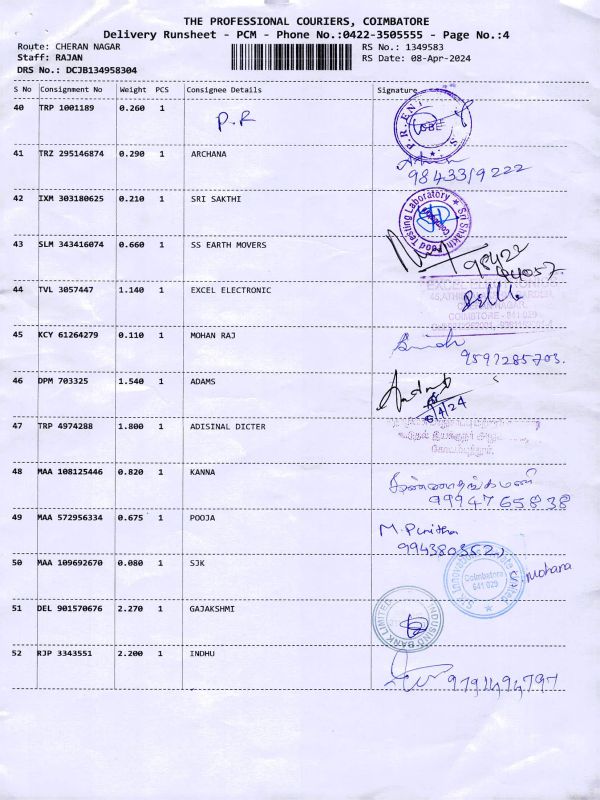 THE PROFESSIONAL COURIERS, COIMBATORE
Delivery Runsheet - PCM - Phone No.:0422-3505555 - Page No.:4
Route: CHERAN NAGAR RS No.: 1349583
Staff: RAJAN RS Date: 08-Apr-2024
DRS No.: DCJB134958304
S No Consignment No Weight PCS Consignee Details Signature
40 TRP 1001189 0.260 1 P.R
41 TRZ 295146874 0.290 1 ARCHANA
9843319222
42 IXM 303180625 0.210 1 SRI SAKTHI Food Testing Laboratory ★ Sri Shakthi
43 SLM 343416074 0.660 1 SS EARTH MOVERS
98422
44057.
44 TVL 3057447 1.140 1 EXCEL ELECTRONIC
COIMBTORE - 641 029
45 KCY 61264279 0.110 1 MOHAN RAJ
9597285703.
46 DPM 703325 1.540 1 ADAMS
8/4/24
47 TRP 4974288 1.800 1 ADISINAL DICTER
48 MAA 108125446 0.820 1 KANNA
9994765838
49 MAA 572956334 0.675 1 POOJA M. Punitha
50 MAA 109692670 0.080 1 SJK Coimbatore
641 029
S. Mohana
51 DEL 901570676 2.270 1 GAJAKSHMI INDUSIND BANK LIMITED
52 RJP 3343551 2.200 1 INDHU
9791494797